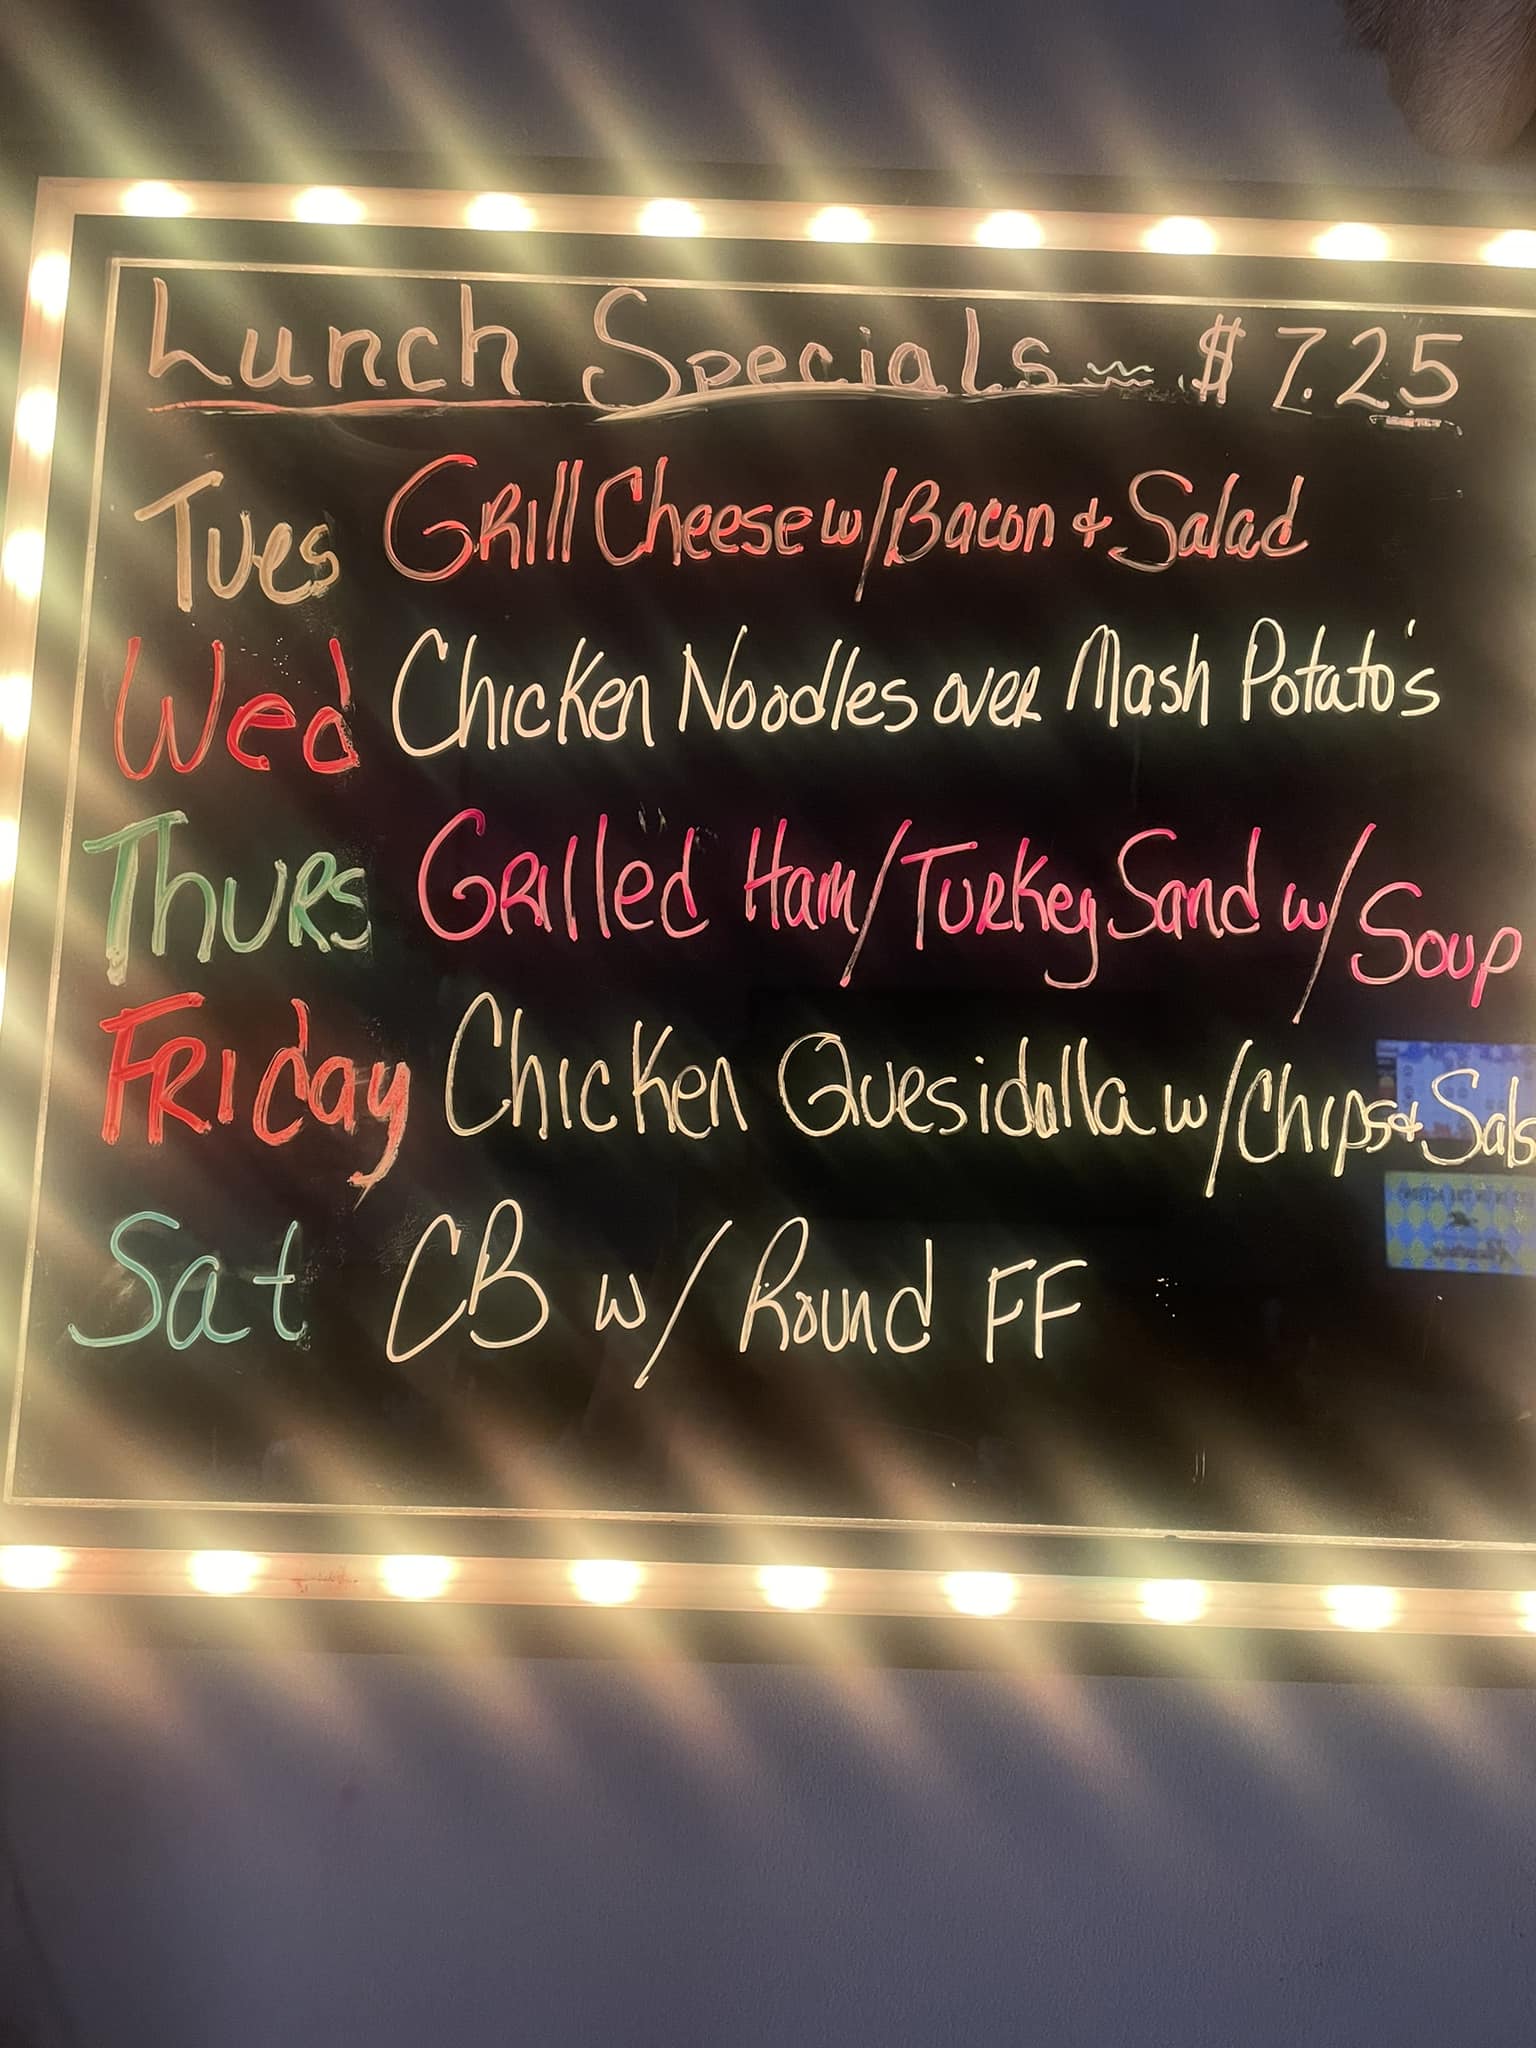 Lunch Specials ~ $7.25
Tues Grill Cheese w/Bacon & Salad
Wed Chicken Noodles over Mash Potato's
Thurs Grilled Ham/Turkey Sand w/Soup
Friday Chicken Quesidalla w/Chips & Sals
Sat CB w/ Round FF